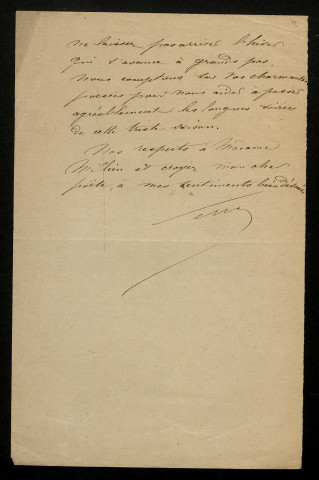 ne laissez pas arriver l'hiver
qui s'avance à grands pas.
Nous comptons sur vos charmantes
poésies pour nous aider à passer
agréablement les longues soirées
de cette triste saison.
Nos respects à Madame
Millien et croyez, mon cher
poète, à mes sentiments bien dévoués